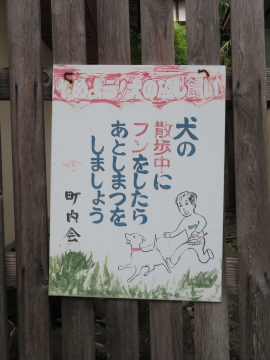 犬の
散歩中に
フンをしたら
あとしまつを
しましょう
町内会